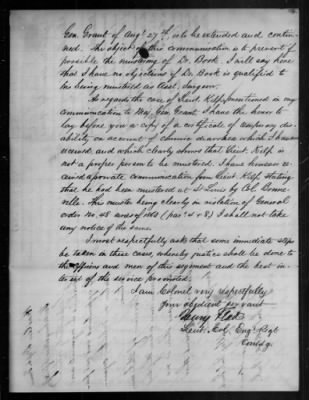 Gen. Grant of Augt 27th, is to be extended and contin-
ued. The object of this communication is to prevent if
possible the mustering of Dr. Book. I will say here
that I have no objections if Dr. Book is qualified to
his being mustered as Asst. Surgeon.
As regards the case of Lieut Kilp, mentioned in my
communication to Maj. Gen. Grant, I have the honor to
lay before you a copy of a certificate of temporary dis-
ability, on account of chronic diarrhea which I have
received, and which clearly shows that Lieut. Kilp is
not a proper person to be mustered. I have however re-
ceived a private communication from Lieut Kilp. stating
that he had been mustered at St Louis by Col. Bonne-
ville. This muster being clearly in violation of General
order No. 48 series of 1863 (par: 4 & 8) I shall not take
any notice of the same.
I most respectfully ask that some immediate steps
be taken in these cases, whereby justice shall be done to
the officers and men of this regiment and the best in-
terest of the service promoted.
I am Colonel very respectfully
Your obedient servant
Henry Flad
Lieut. Col. Engr. Regt
Comdg.